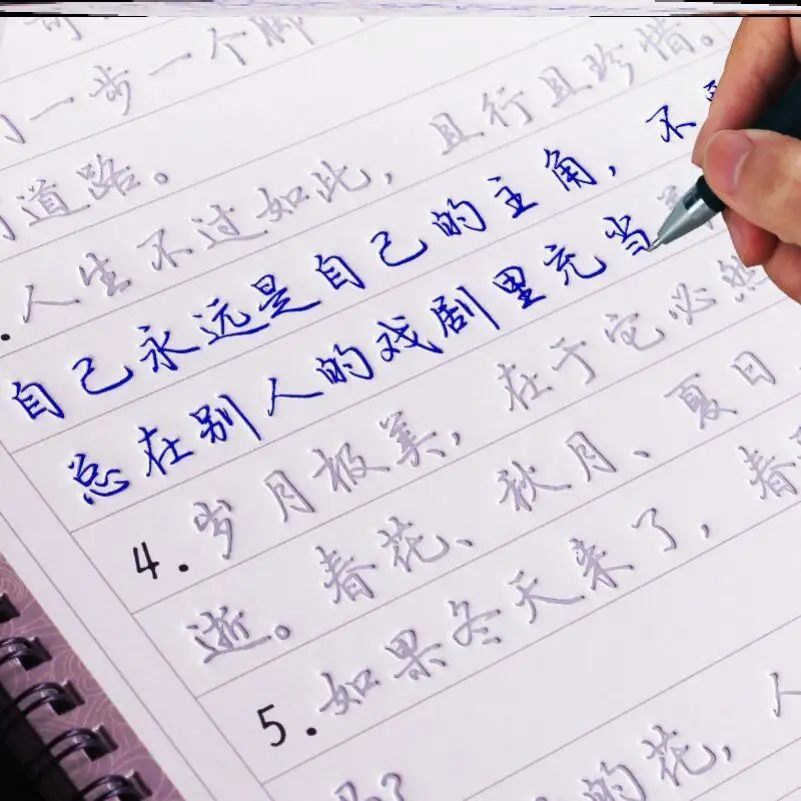 一步一个脚
道路。
人生不过如此，且行且珍惜。
自己永远是自己的主角，不
总在别人的戏剧里充当
4.岁月极美，在于它必然
逝。春花、秋月、夏日
5.如果冬天来了，春
的花，人